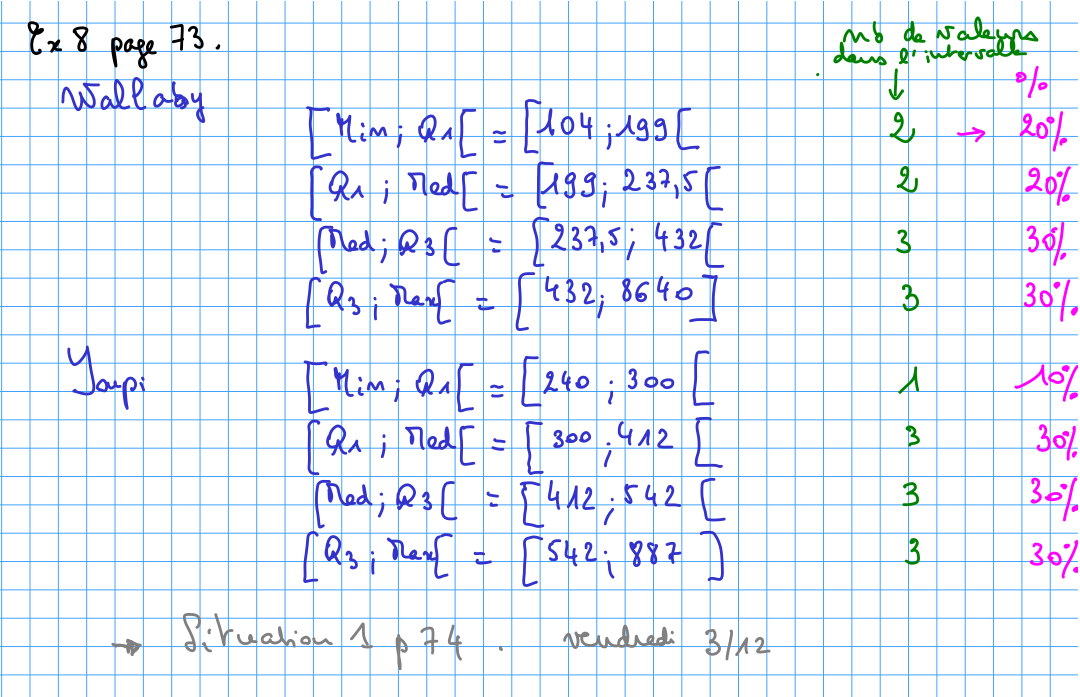 Ex 8 page 73.
nb de valeurs
dans l'intervalle
↓ %
Wallaby
[Min ; Q1[ = [104 ; 199[ 2 → 20%
[Q1 ; Med[ = [199 ; 237,5[ 2 20%
[Med ; Q3[ = [237,5 ; 432[ 3 30%
[Q3 ; Max[ = [432 ; 8640] 3 30%
Youpi
[Min ; Q1[ = [240 ; 300[ 1 10%
[Q1 ; Med[ = [300 ; 412[ 3 30%
[Med ; Q3[ = [412 ; 542[ 3 30%
[Q3 ; Max[ = [542 ; 887] 3 30%
→ Situation 1 p 74 . vendredi 3/12